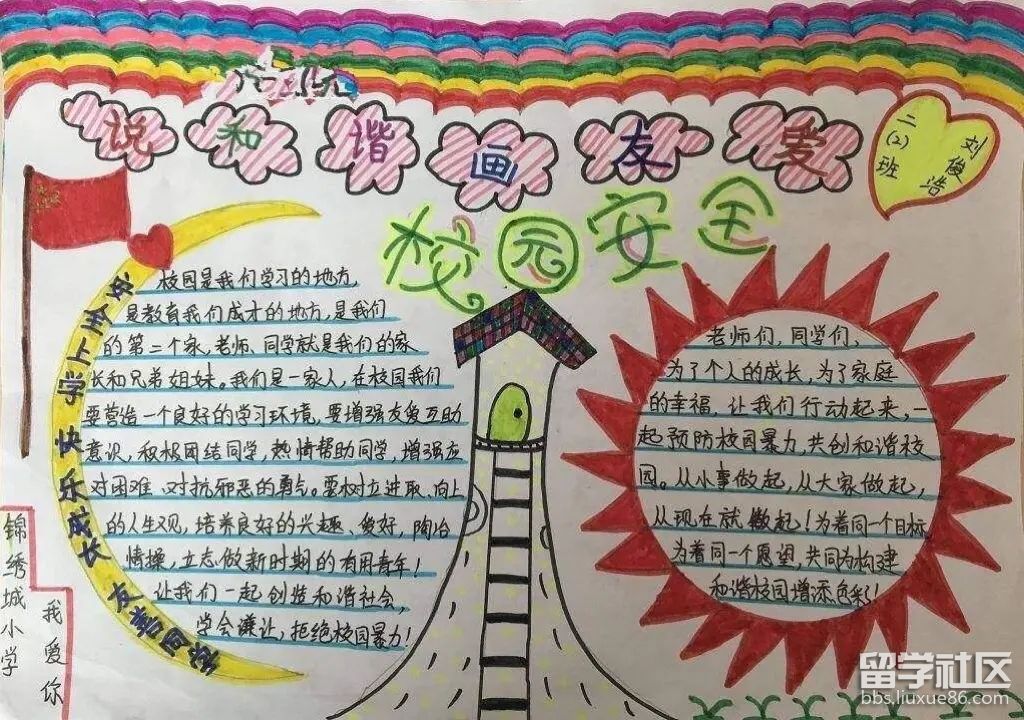 说和谐画友爱
二(2)班
刘俊浩
校园安全
安全上学 快乐成长 友善同学
校园是我们学习的地方,
是教育我们成才的地方,是我们
的第二个家,老师、同学就是我们的家
长和兄弟姐妹。我们是一家人,在校园我们
要营造一个良好的学习环境,要增强友爱互助
意识,积极团结同学,热情帮助同学,增强应
对困难、对抗邪恶的勇气。要树立进取、向上
的人生观,培养良好的兴趣、爱好,陶冶
情操,立志做新时期的有用青年!
让我们一起创造和谐社会,
学会谦让,拒绝校园暴力!
老师们,同学们,
为了个人的成长,为了家庭
的幸福,让我们行动起来,一
起预防校园暴力,共创和谐校
园。从小事做起,从大家做起,
从现在就做起!为着同一个目标,
为着同一个愿望,共同为构建
和谐校园增添色彩!
锦绣城小学
我爱你
留学社区
bbs.liuxue86.com